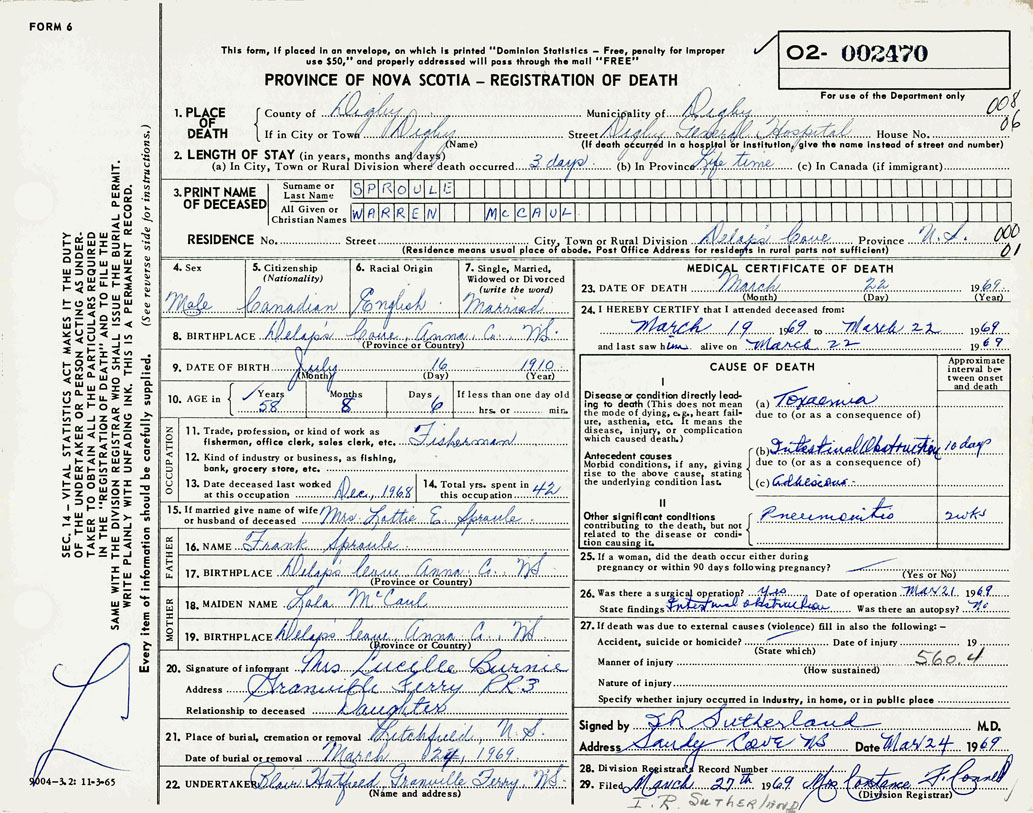 FORM 6
This form, if placed in an envelope, on which is printed "Dominion Statistics – Free, penalty for improper
use $50," and properly addressed will pass through the mail "FREE"
PROVINCE OF NOVA SCOTIA – REGISTRATION OF DEATH
02- 002470
For use of the Department only
008
06
1. PLACE OF DEATH
County of Digby Municipality of Digby
If in City or Town Digby Street Digby General Hospital House No.
(Name) (If death occurred in a hospital or institution, give the name instead of street and number)
2. LENGTH OF STAY (in years, months and days)
(a) In City, Town or Rural Division where death occurred 3 days (b) In Province Life time (c) In Canada (if immigrant)
3. PRINT NAME OF DECEASED
Surname or Last Name SPROULE
All Given or Christian Names WARREN McCAUL
RESIDENCE No. Street City, Town or Rural Division Delap's Cove Province N.S.
(Residence means usual place of abode. Post Office Address for residents in rural parts not sufficient)
000
01
4. Sex Male
5. Citizenship (Nationality) Canadian
6. Racial Origin English
7. Single, Married, Widowed or Divorced (write the word) Married
8. BIRTHPLACE Delap's Cove, Anna. Co. NS
(Province or Country)
9. DATE OF BIRTH July 16 1910
(Month) (Day) (Year)
10. AGE in Years 58 Months 8 Days 6 If less than one day old hrs. or min.
OCCUPATION
11. Trade, profession or kind of work as
fisherman, office clerk, sales clerk, etc. Fisherman
12. Kind of industry or business, as fishing,
bank, grocery store, etc.
13. Date deceased last worked at this occupation Dec., 1968
14. Total yrs. spent in this occupation 42
15. If married give name of wife or husband of deceased Mrs. Lottie E. Sproule
FATHER
16. NAME Frank Sproule
17. BIRTHPLACE Delap's Cove Anna. Co. NS
(Province or Country)
MOTHER
18. MAIDEN NAME Lela McCaul
19. BIRTHPLACE Delap's Cove, Anna. Co., NS
(Province or Country)
20. Signature of informant Mrs Lucylle Burnie
Address Granville Ferry RR3
Relationship to deceased Daughter
21. Place of burial, cremation or removal Litchfield, N.S.
Date of burial or removal March 24, 1969
22. UNDERTAKER Blair Hatfield, Granville Ferry, NS.
(Name and address)
MEDICAL CERTIFICATE OF DEATH
23. DATE OF DEATH March 22 1969
(Month) (Day) (Year)
24. I HEREBY CERTIFY that I attended deceased from:
March 19 1969 to March 22 1969
and last saw him alive on March 22 1969
CAUSE OF DEATH
Approximate interval between onset and death
I
Disease or condition directly leading to death (This does not mean the mode of dying, e.g., heart failure, asthenia, etc. It means the disease, injury, or complication which caused death.)
(a) Toxaemia
due to (or as a consequence of)
Antecedent causes
Morbid conditions, if any, giving rise to the above cause, stating the underlying condition last.
(b) Intestinal Obstruction 10 days
due to (or as a consequence of)
(c) adhesions
II
Other significant conditions contributing to the death, but not related to the disease or condition causing it.
Pneumonitis 2 wks
25. If a woman, did the death occur either during
pregnancy or within 90 days following pregnancy?
(Yes or No)
26. Was there a surgical operation? Yes Date of operation Mar 21 1969
State findings Intestinal obstruction Was there an autopsy? No
27. If death was due to external causes (violence) fill in also the following: –
Accident, suicide or homicide? Date of injury 19
(State which)
Manner of injury 560.4
(How sustained)
Nature of injury
Specify whether injury occurred in industry, in home, or in public place
Signed by I R Sutherland M.D.
Address Sandy Cove NS Date Mar 24 1969
28. Division Registrar's Record Number
29. Filed March 27th 1969 Mrs Constance F.
(Division Registrar)
I.R. SUTHERLAND
SEC. 14 – VITAL STATISTICS ACT MAKES IT THE DUTY
OF THE UNDERTAKER OR PERSON ACTING AS UNDER-
TAKER TO OBTAIN ALL THE PARTICULARS REQUIRED
IN THE "REGISTRATION OF DEATH" AND TO FILE THE
SAME WITH THE DIVISION REGISTRAR WHO SHALL ISSUE THE BURIAL PERMIT.
WRITE PLAINLY WITH UNFADING INK. THIS IS A PERMANENT RECORD.
Every item of information should be carefully supplied. (See reverse side for instructions.)
9004-3.2: 11-3-65